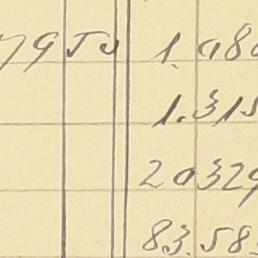 79 Ju 1.080
1.315
20329
83.58